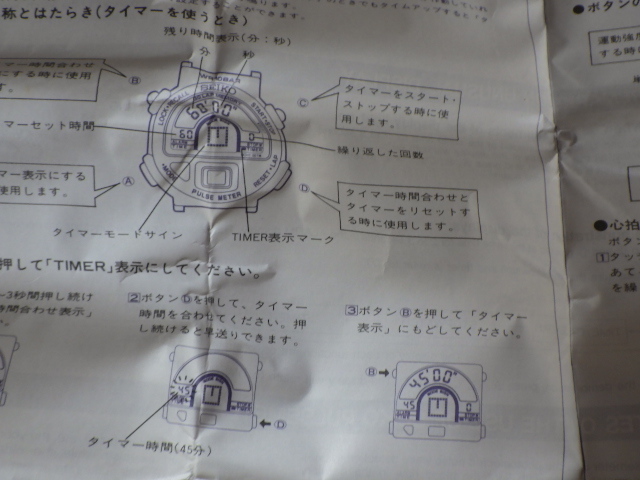 称とはたらき(タイマーを使うとき)
残り時間表示(分：秒)
分
秒
マー時間合わせ
にする時に使用
す。
Ⓑ
SEIKO
LOCK/RECALL
START/STOP
60'00
60
0
MODE
RESET・LAP
PULSE METER
Ⓒ
タイマーをスタート・
ストップする時に使
用します。
マーセット時間
繰り返した回数
マー表示にする
使用します。
Ⓐ
Ⓓ
タイマー時間合わせと
タイマーをリセットす
る時に使用します。
タイマーモードサイン
TIMER表示マーク
押して「TIMER」表示にしてください。
3秒間押し続け
時間合わせ表示」
2 ボタンⒹを押して、タイマー
時間を合わせてください。押
し続けると早送りできます。
3 ボタンⒷを押して「タイマー
表示」にもどしてください。
45
Ⓓ
タイマー時間(45分)
Ⓑ
45'00
45
0
●ボタンの
運動強度
する時
●心拍
ボタ
1 タッ
あて
を繰